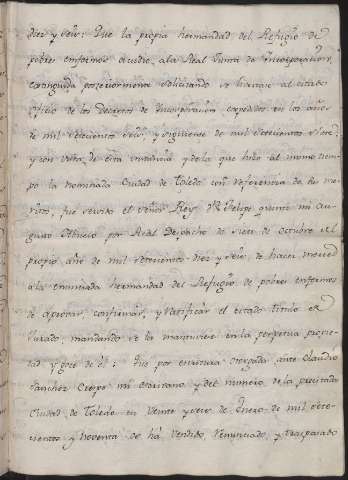 diez y seis: Que la propia hermandad del Refugio de
pobres enfermos acudio, a la Real Junta de Incorporacion,
extinguida posteriormente solicitando se librase al citado
oficio de los Decretos de Incorporacion expedidos en los años
de mil setecientos seis, y siguiente de mil setecientos siete:
y con vista de esta instancia y de la que hizo al mismo tiem-
po la nominada Ciudad de Toledo con referencia de los me-
ritos, fue servido el señor Rey Dn Felipe quinto mi Au-
gusto Abuelo por Real Despacho de siete de octubre del
propio año de mil setecientos diez y seis, de hacer merced
a la enunciada hermandad del Refugio de pobres enfermos
de aprovar, confirmar, y ratificar el citado titulo de
Jurado, mandando se les mantuviese en la perpetua propie-
dad, y goce de él: Que por escritura otorgada ante Claudio
Sanchez Crespo mi escrivano y del numero de la precitada
Ciudad de Toledo en veinte y seis de Enero de mil sete-
cientos y noventa se ha vendido, renunciado, y traspasado